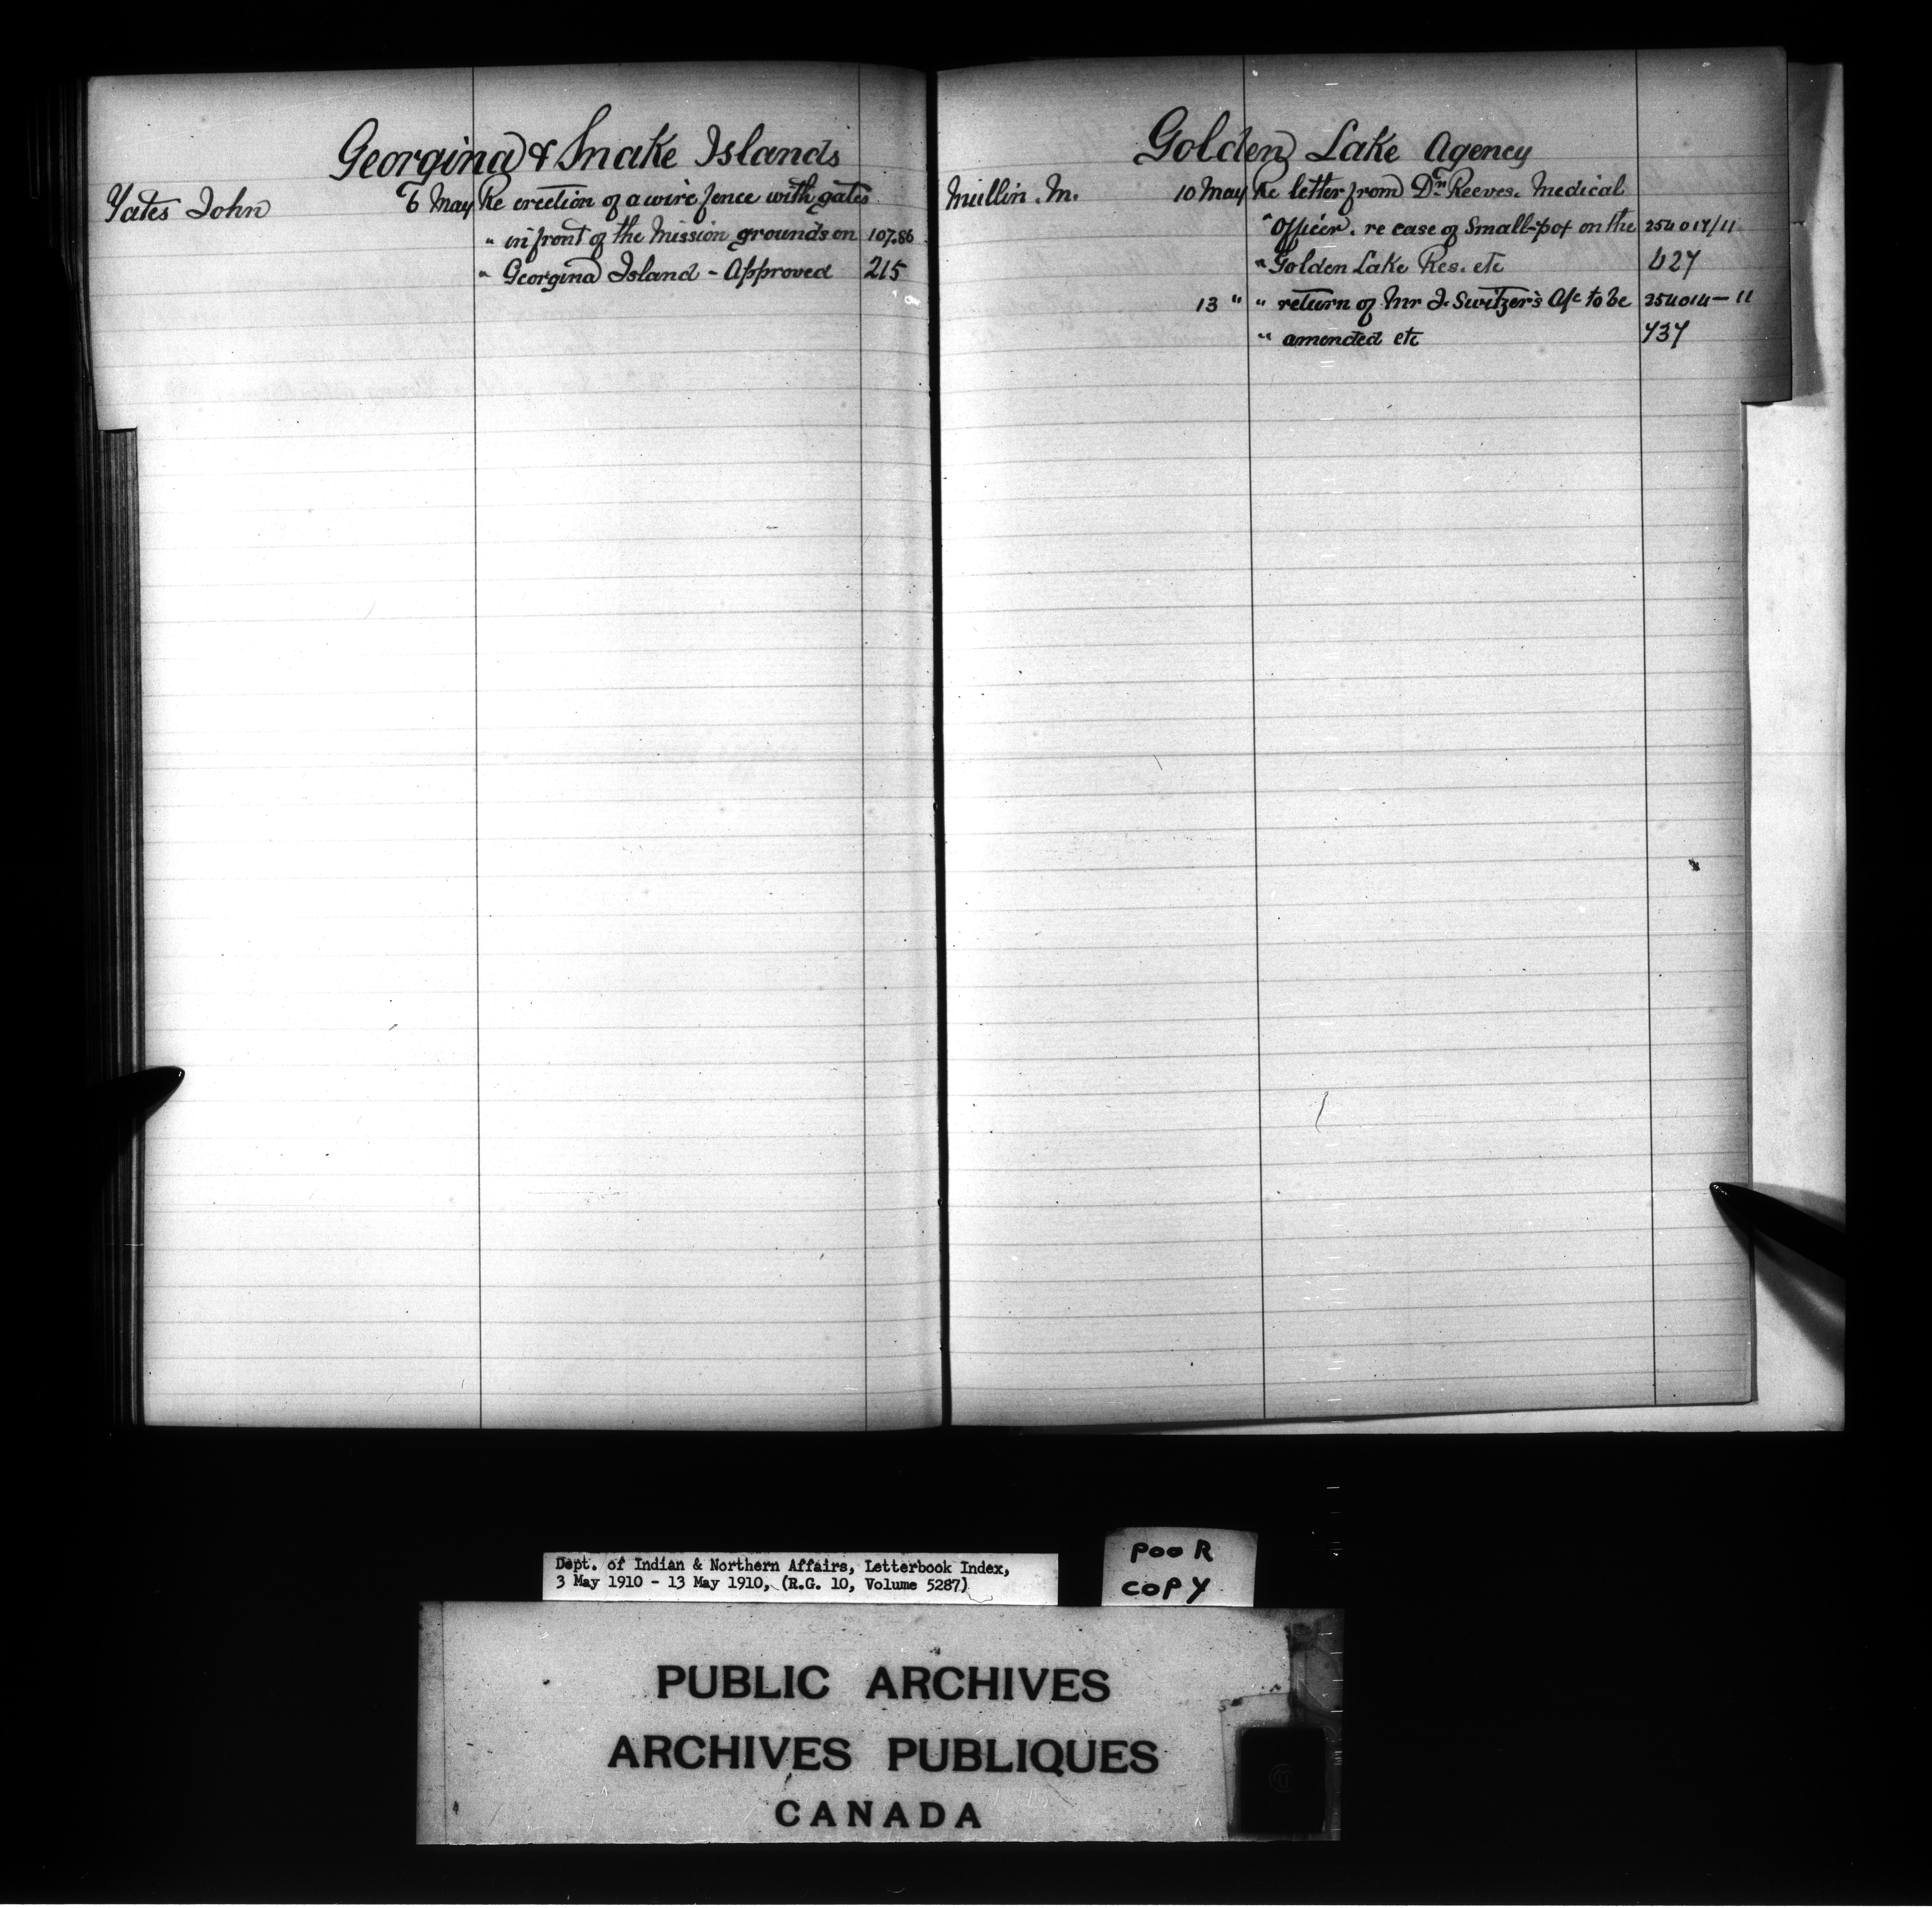 Georgina & Snake Islands
Yates John 6 May Re erection of a wire fence with gates
" in front of the Mission grounds on 107.86
" Georgina Island - Approved 215
Golden Lake Agency
Mullin. M. 10 May Re letter from Dr. Reeves. Medical
" Officer. re case of Small-pox on the 254014/11
" Golden Lake Res. etc 427
13 " " return of Mr J. Switzer's A/c to be 254014-11
" amended etc 737
Dept. of Indian & Northern Affairs, Letterbook Index,
3 May 1910 - 13 May 1910, (R.G. 10, Volume 5287)
POOR
COPY
PUBLIC ARCHIVES
ARCHIVES PUBLIQUES
CANADA